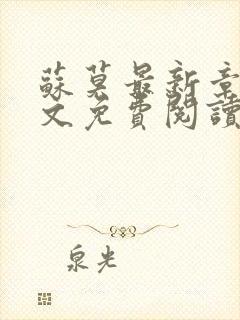 蘇莫最新章
文免費閱讀
泉光